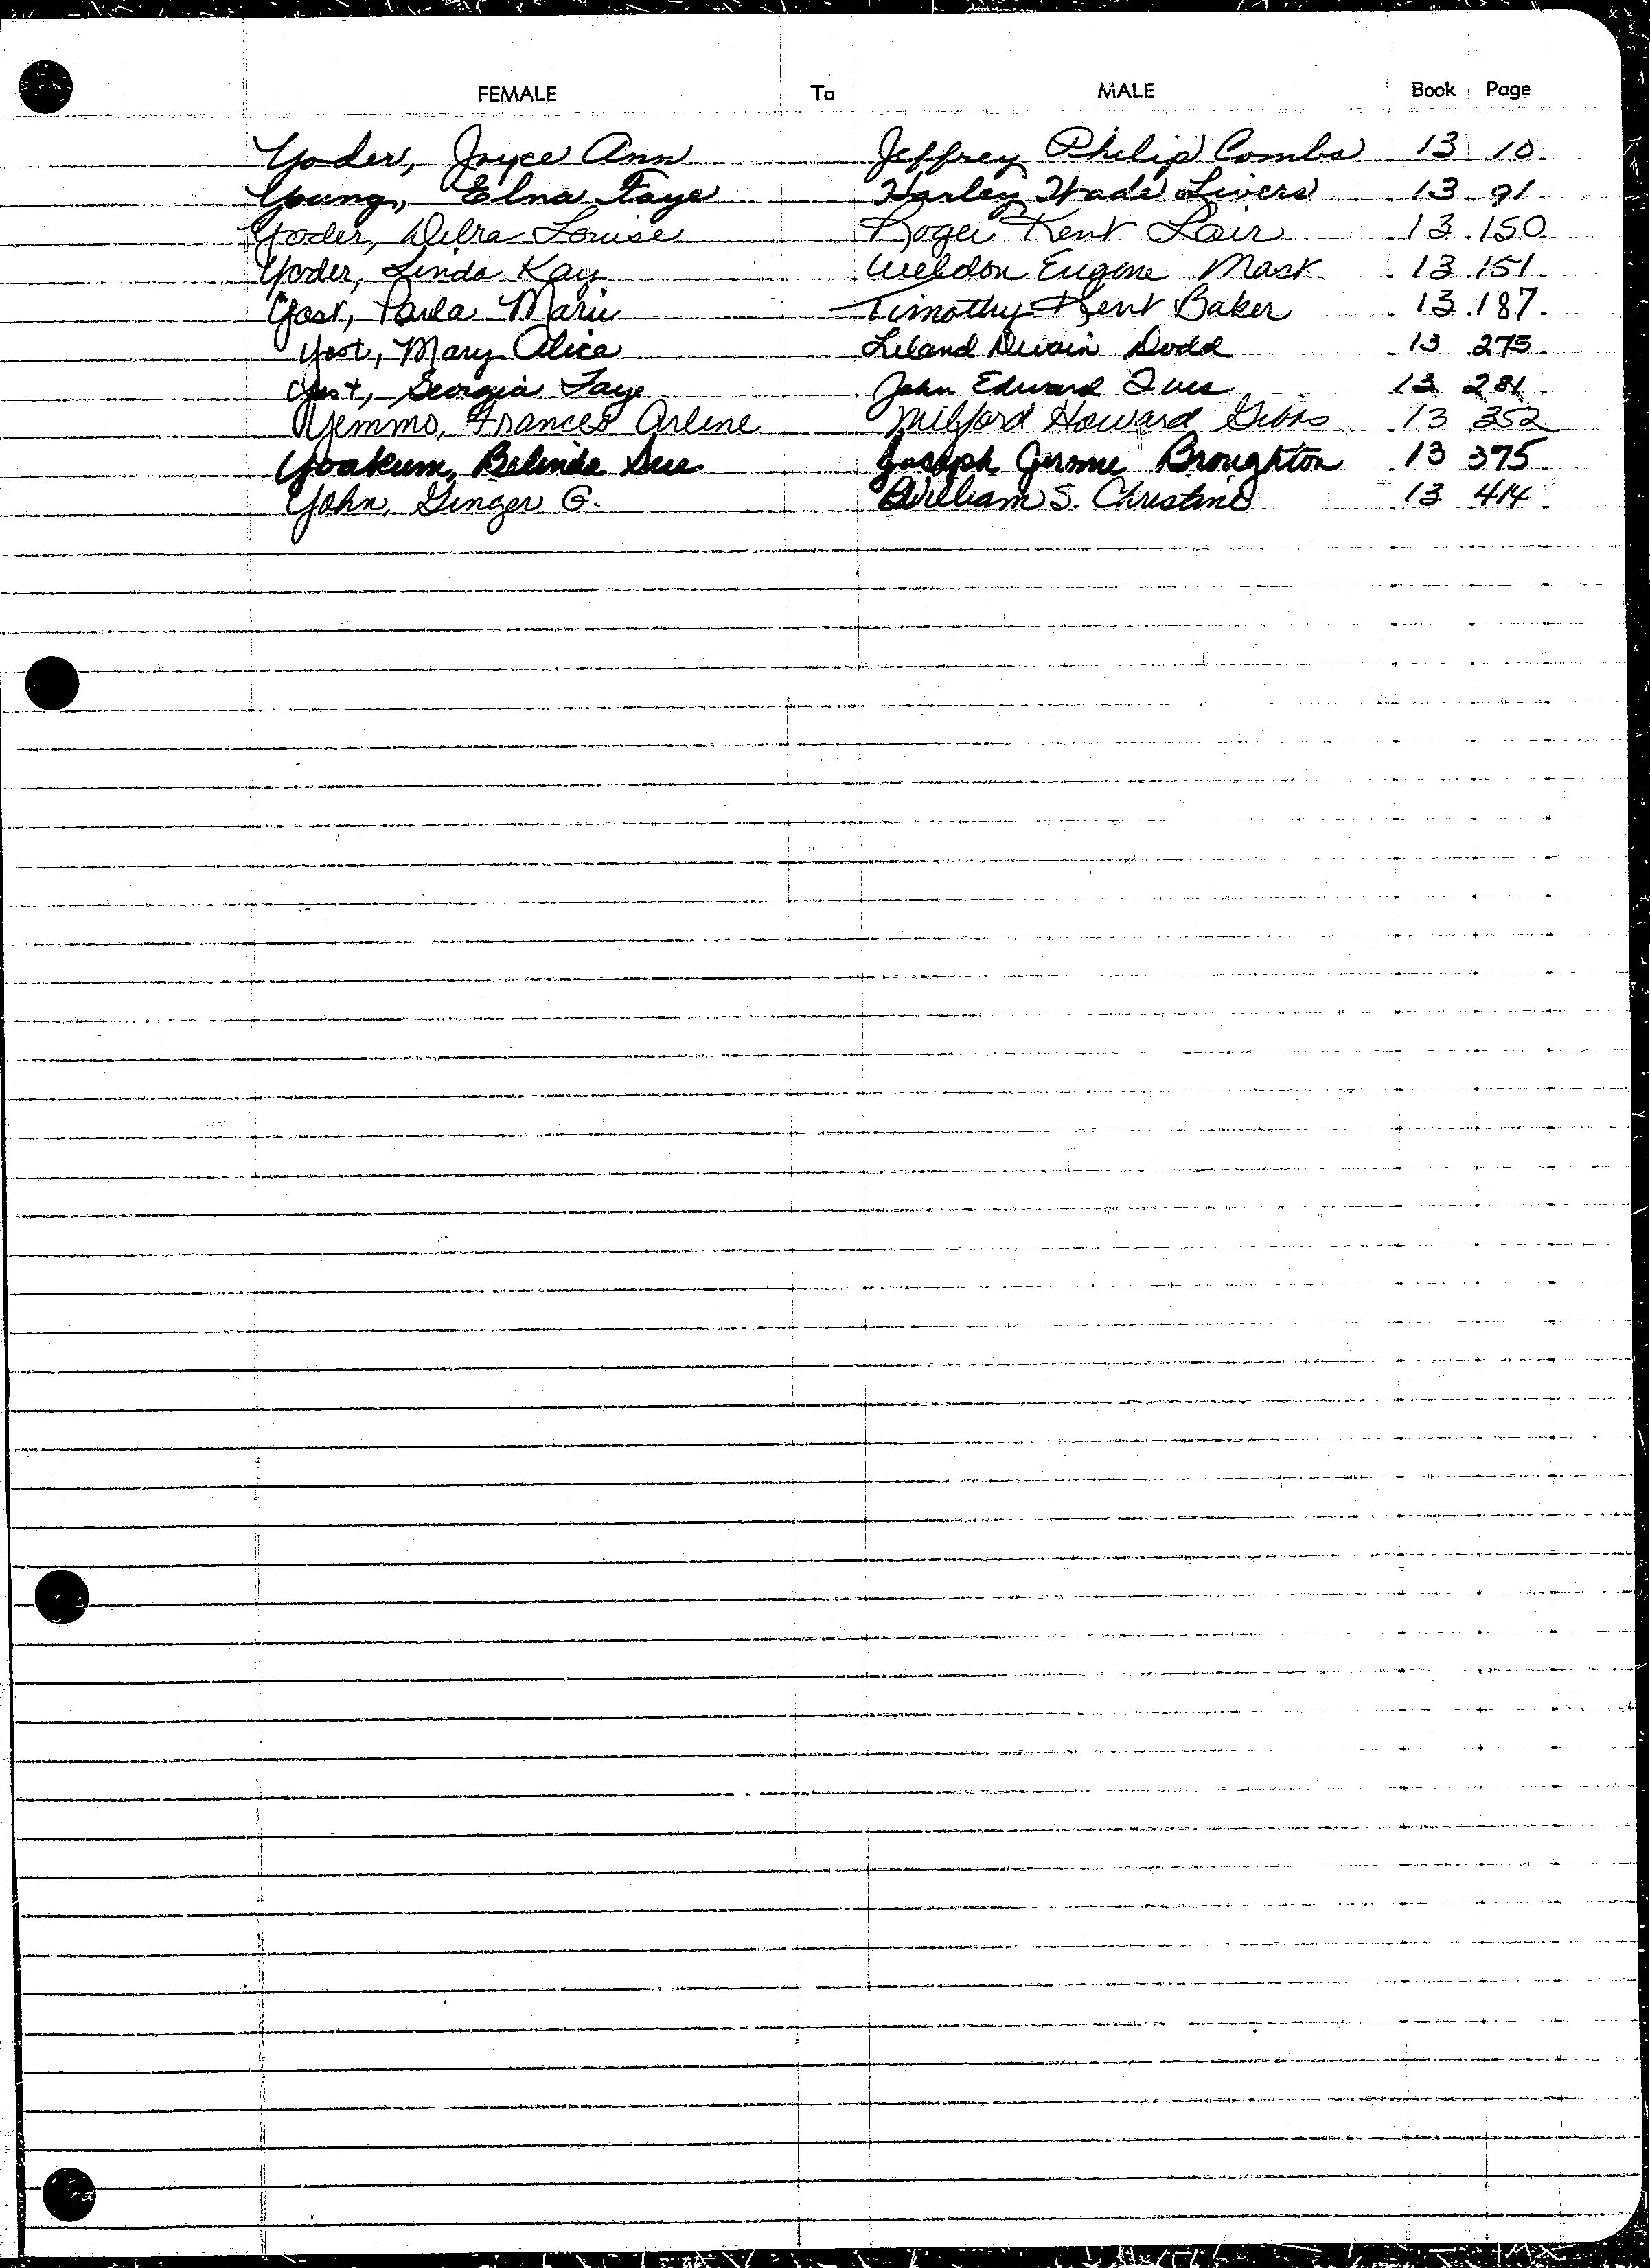 FEMALE To MALE Book Page
Yoder, Joyce Ann Jeffrey Philip Combs 13 10
Young, Elna Faye Harley Wade Livers 13 91
Yoder, Debra Louise Roger Kent Lair 13 150
Yoder, Linda Kay Weldon Eugene Mast 13 151
Yost, Paula Marie Timothy Kent Baker 13 187
Yost, Mary Alice Leland Dwain Dodd 13 275
Yost, Georgia Faye John Edward Ives 13 281
Yemmo, Frances Arlene Milford Howard Gibbs 13 352
Yoakum, Belinda Sue Joseph Jerome Broughton 13 375
Yohn, Ginger G. William S. Christine 13 414